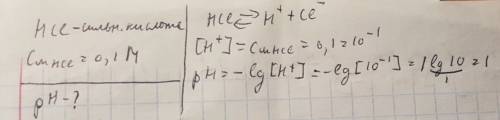 HCl - сильн. кислота
C м HCl = 0,1 M
pH - ?
HCl ⇄ H⁺ + Cl⁻
[H⁺] = C м HCl = 0,1 = 10⁻¹
pH = -lg [H⁺] = -lg [10⁻¹] = 1 lg 10 = 1
1